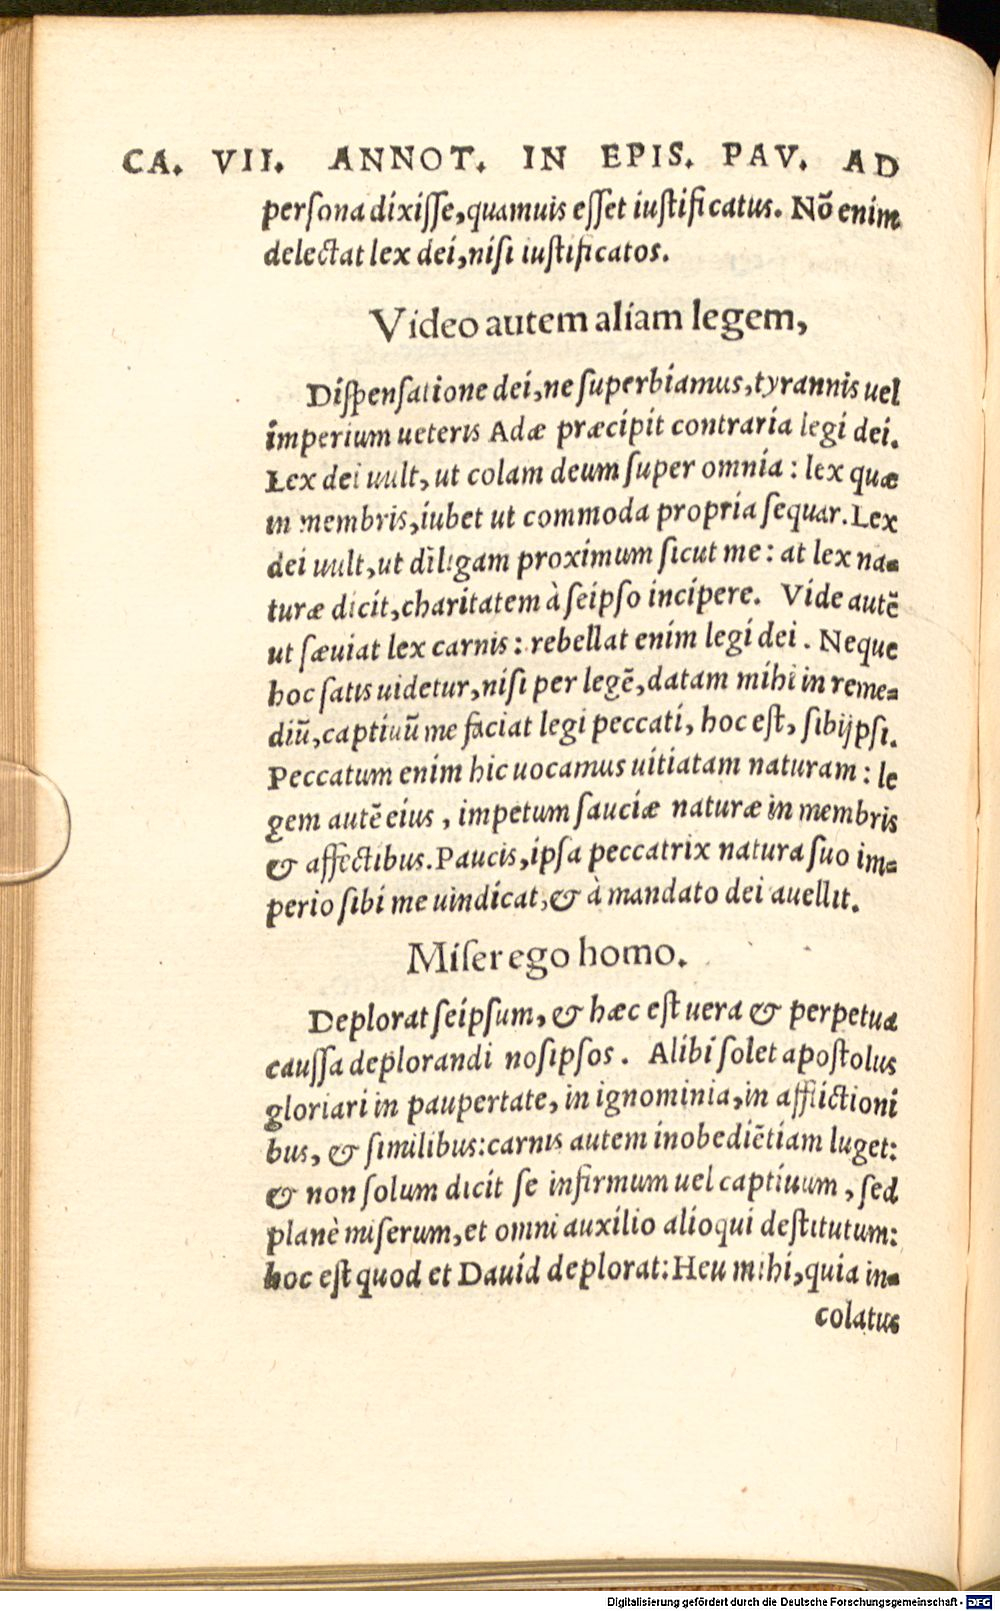 CA. VII. ANNOT. IN EPIS. PAV. AD
perſona dixiſſe, quamuis eſſet iuſtificatus. Nõ enim
delectat lex dei, niſi iuſtificatos.
Video autem aliam legem,
Diſpenſatione dei, ne ſuperbiamus, tyrannis uel
imperium ueteris Adæ præcipit contraria legi dei.
Lex dei uult, ut colam deum ſuper omnia: lex quæ
in membris, iubet ut commoda propria ſequar. Lex
dei uult, ut diligam proximum ſicut me: at lex na-
turæ dicit, charitatem à ſeipſo incipere. Vide autẽ
ut ſæuiat lex carnis: rebellat enim legi dei. Neque
hoc ſatis uidetur, niſi per legẽ, datam mihi in reme-
diũ, captiuũ me faciat legi peccati, hoc eſt, ſibijpſi.
Peccatum enim hic uocamus uitiatam naturam: le
gem autẽ eius, impetum ſauciæ naturæ in membris
& affectibus. Paucis, ipſa peccatrix natura ſuo im-
perio ſibi me uindicat, & à mandato dei auellit.
Miſer ego homo.
Deplorat ſeipſum, & hæc eſt uera & perpetua
cauſſa deplorandi noſipſos. Alibi ſolet apoſtolus
gloriari in paupertate, in ignominia, in afflictioni
bus, & ſimilibus: carnis autem inobediẽtiam luget:
& non ſolum dicit ſe infirmum uel captiuum, ſed
planè miſerum, et omni auxilio alioqui deſtitutum:
hoc eſt quod et Dauid deplorat: Heu mihi, quia in-
colatus
Digitalisierung gefördert durch die Deutsche Forschungsgemeinschaft - DFG